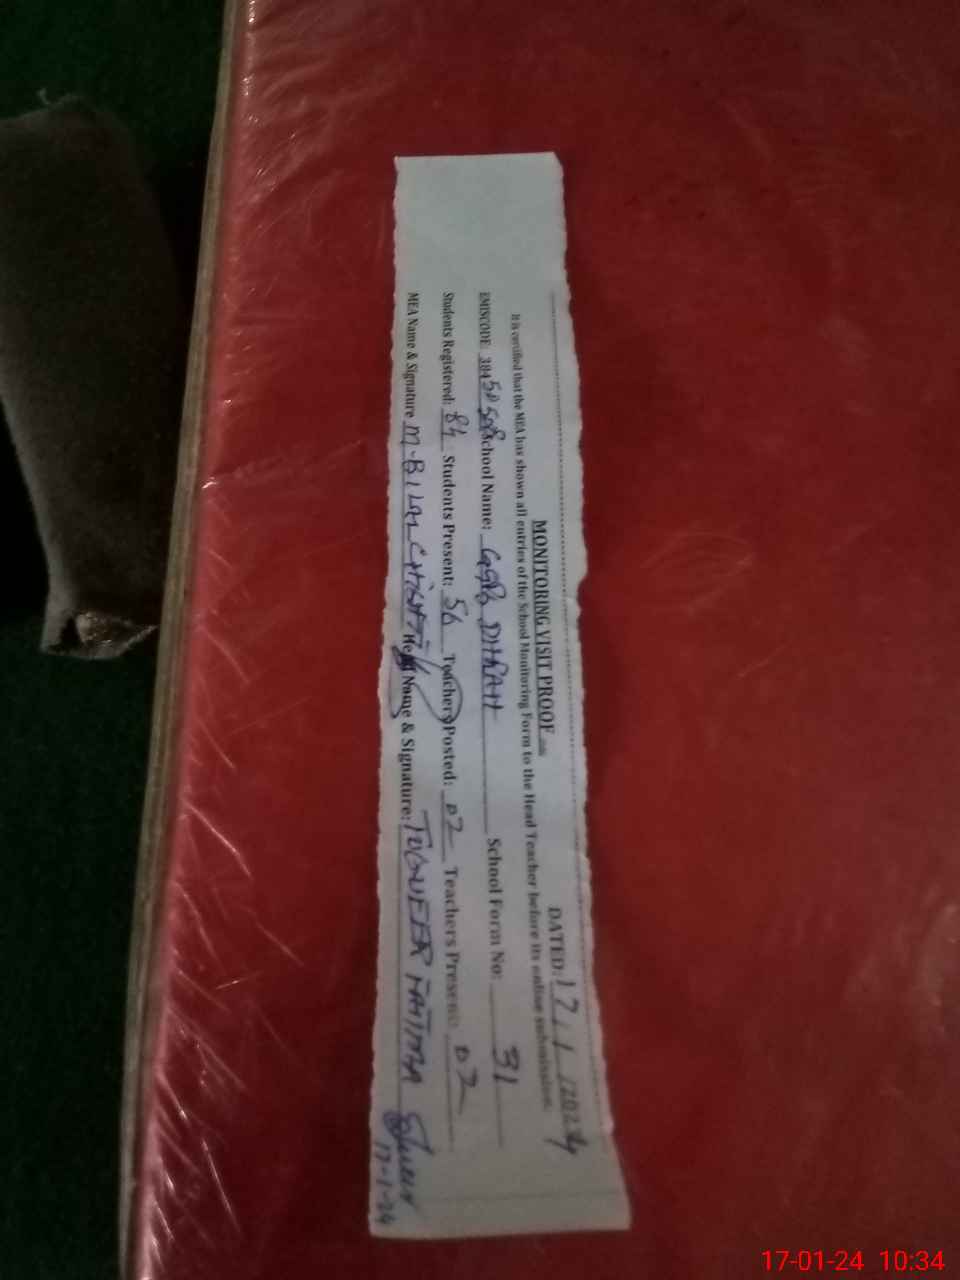 MONITORING VISIT PROOF
DATED: 17/1/2024
It is certified that the MEA has shown all entries of the School Monitoring Form to the Head Teacher before its online submission.
EMISCODE: 384 School Name: DHRAH School Form No: 31
Students Registered: 84 Students Present: 56 Teachers Posted: 02 Teachers Present: 02
MEA Name & Signature M-BILAL CHISHTI Head Name & Signature: TOQUEER FATIMA
17-1-24
17-01-24 10:34